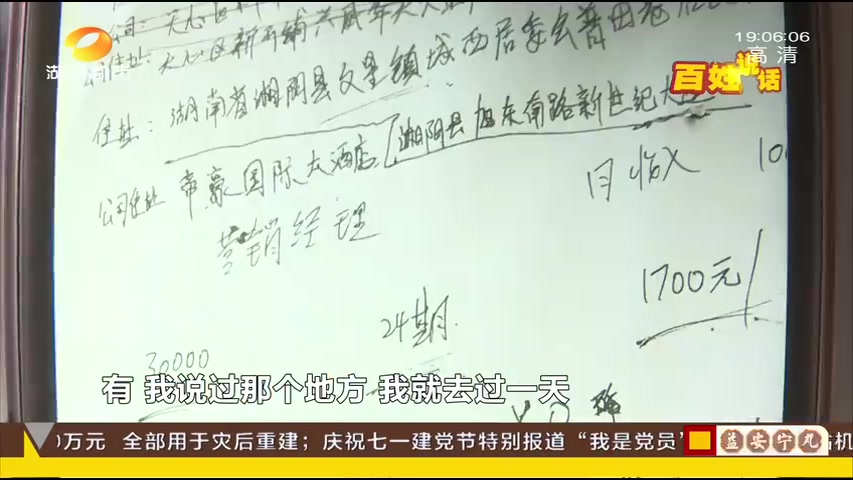 19:06:06
高清
百姓说话
公司:天心区
天心区新开铺
住址:湖南省湘阴县文星镇城西居委会
湘阴县旭东南路新世纪大
公司住址 帝豪国际大酒店
月收入 10
营销经理
1700元
24期
30000
有 我说过那个地方 我就去过一天
0万元 全部用于灾后重建；庆祝七一建党节特别报道“我是党员”
益安宁丸